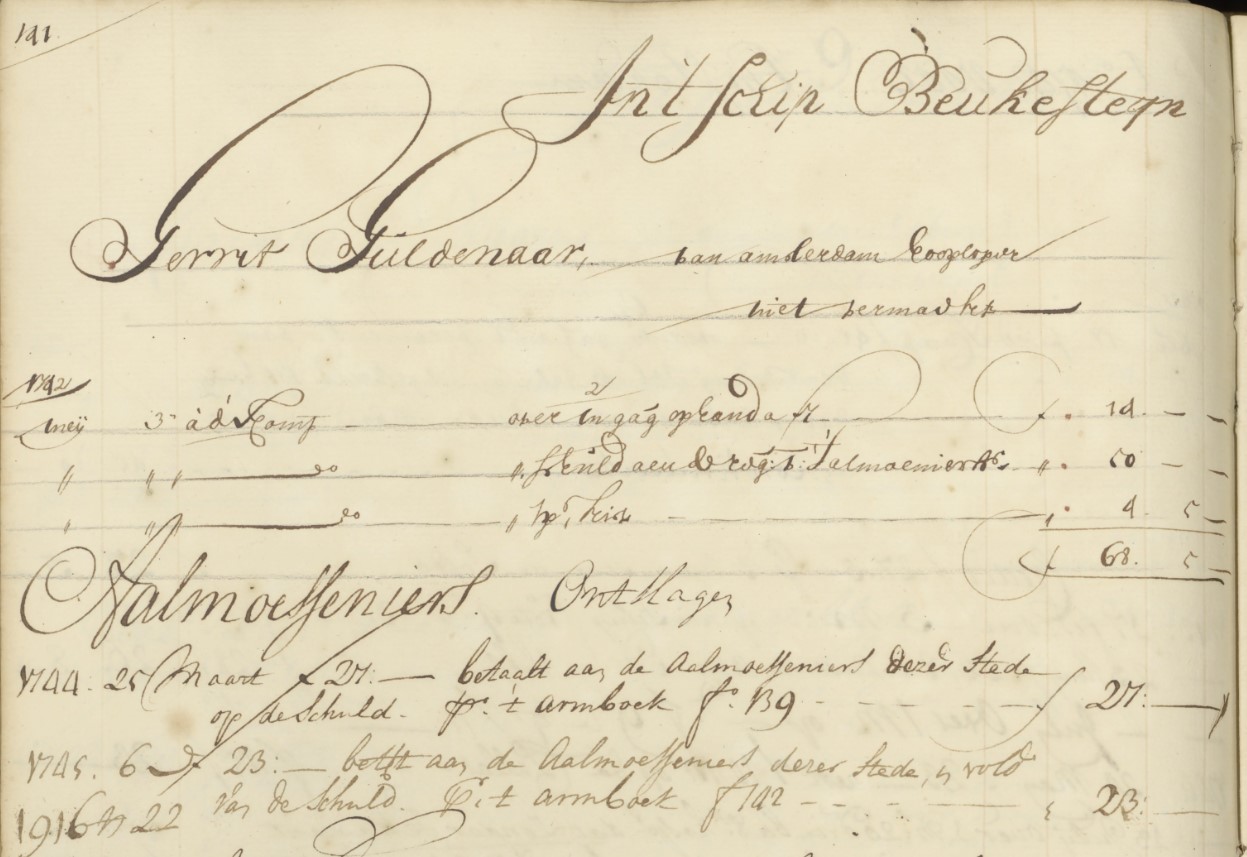 141
Int Schip Beukesteyn
Gerrit Guldenaar, van amsterdam hooploper
niet vermaakt
1742
meij 3 a d' Comp over 2 m gag op hand a f 7 f 14 - -
" " " do " schuld aen de reg: v: 't almoeniershs " 50 - -
" " do " kist " 4 5 -
f 68. 5 -
Aalmoesseniers Ontslagen
1744. 25 Maart f 27: — betaalt aan de Aalmoesseniers dezer Stede
op de Schuld. Pr. t armboek fo. 139 - - - 27: —
1745. 6 do f 23: — bett aan de Aalmoesseniers dezer Stede, in vold
van de Schuld. Pr. t armboek f 142 - - - - " 23: —
1916 N 22